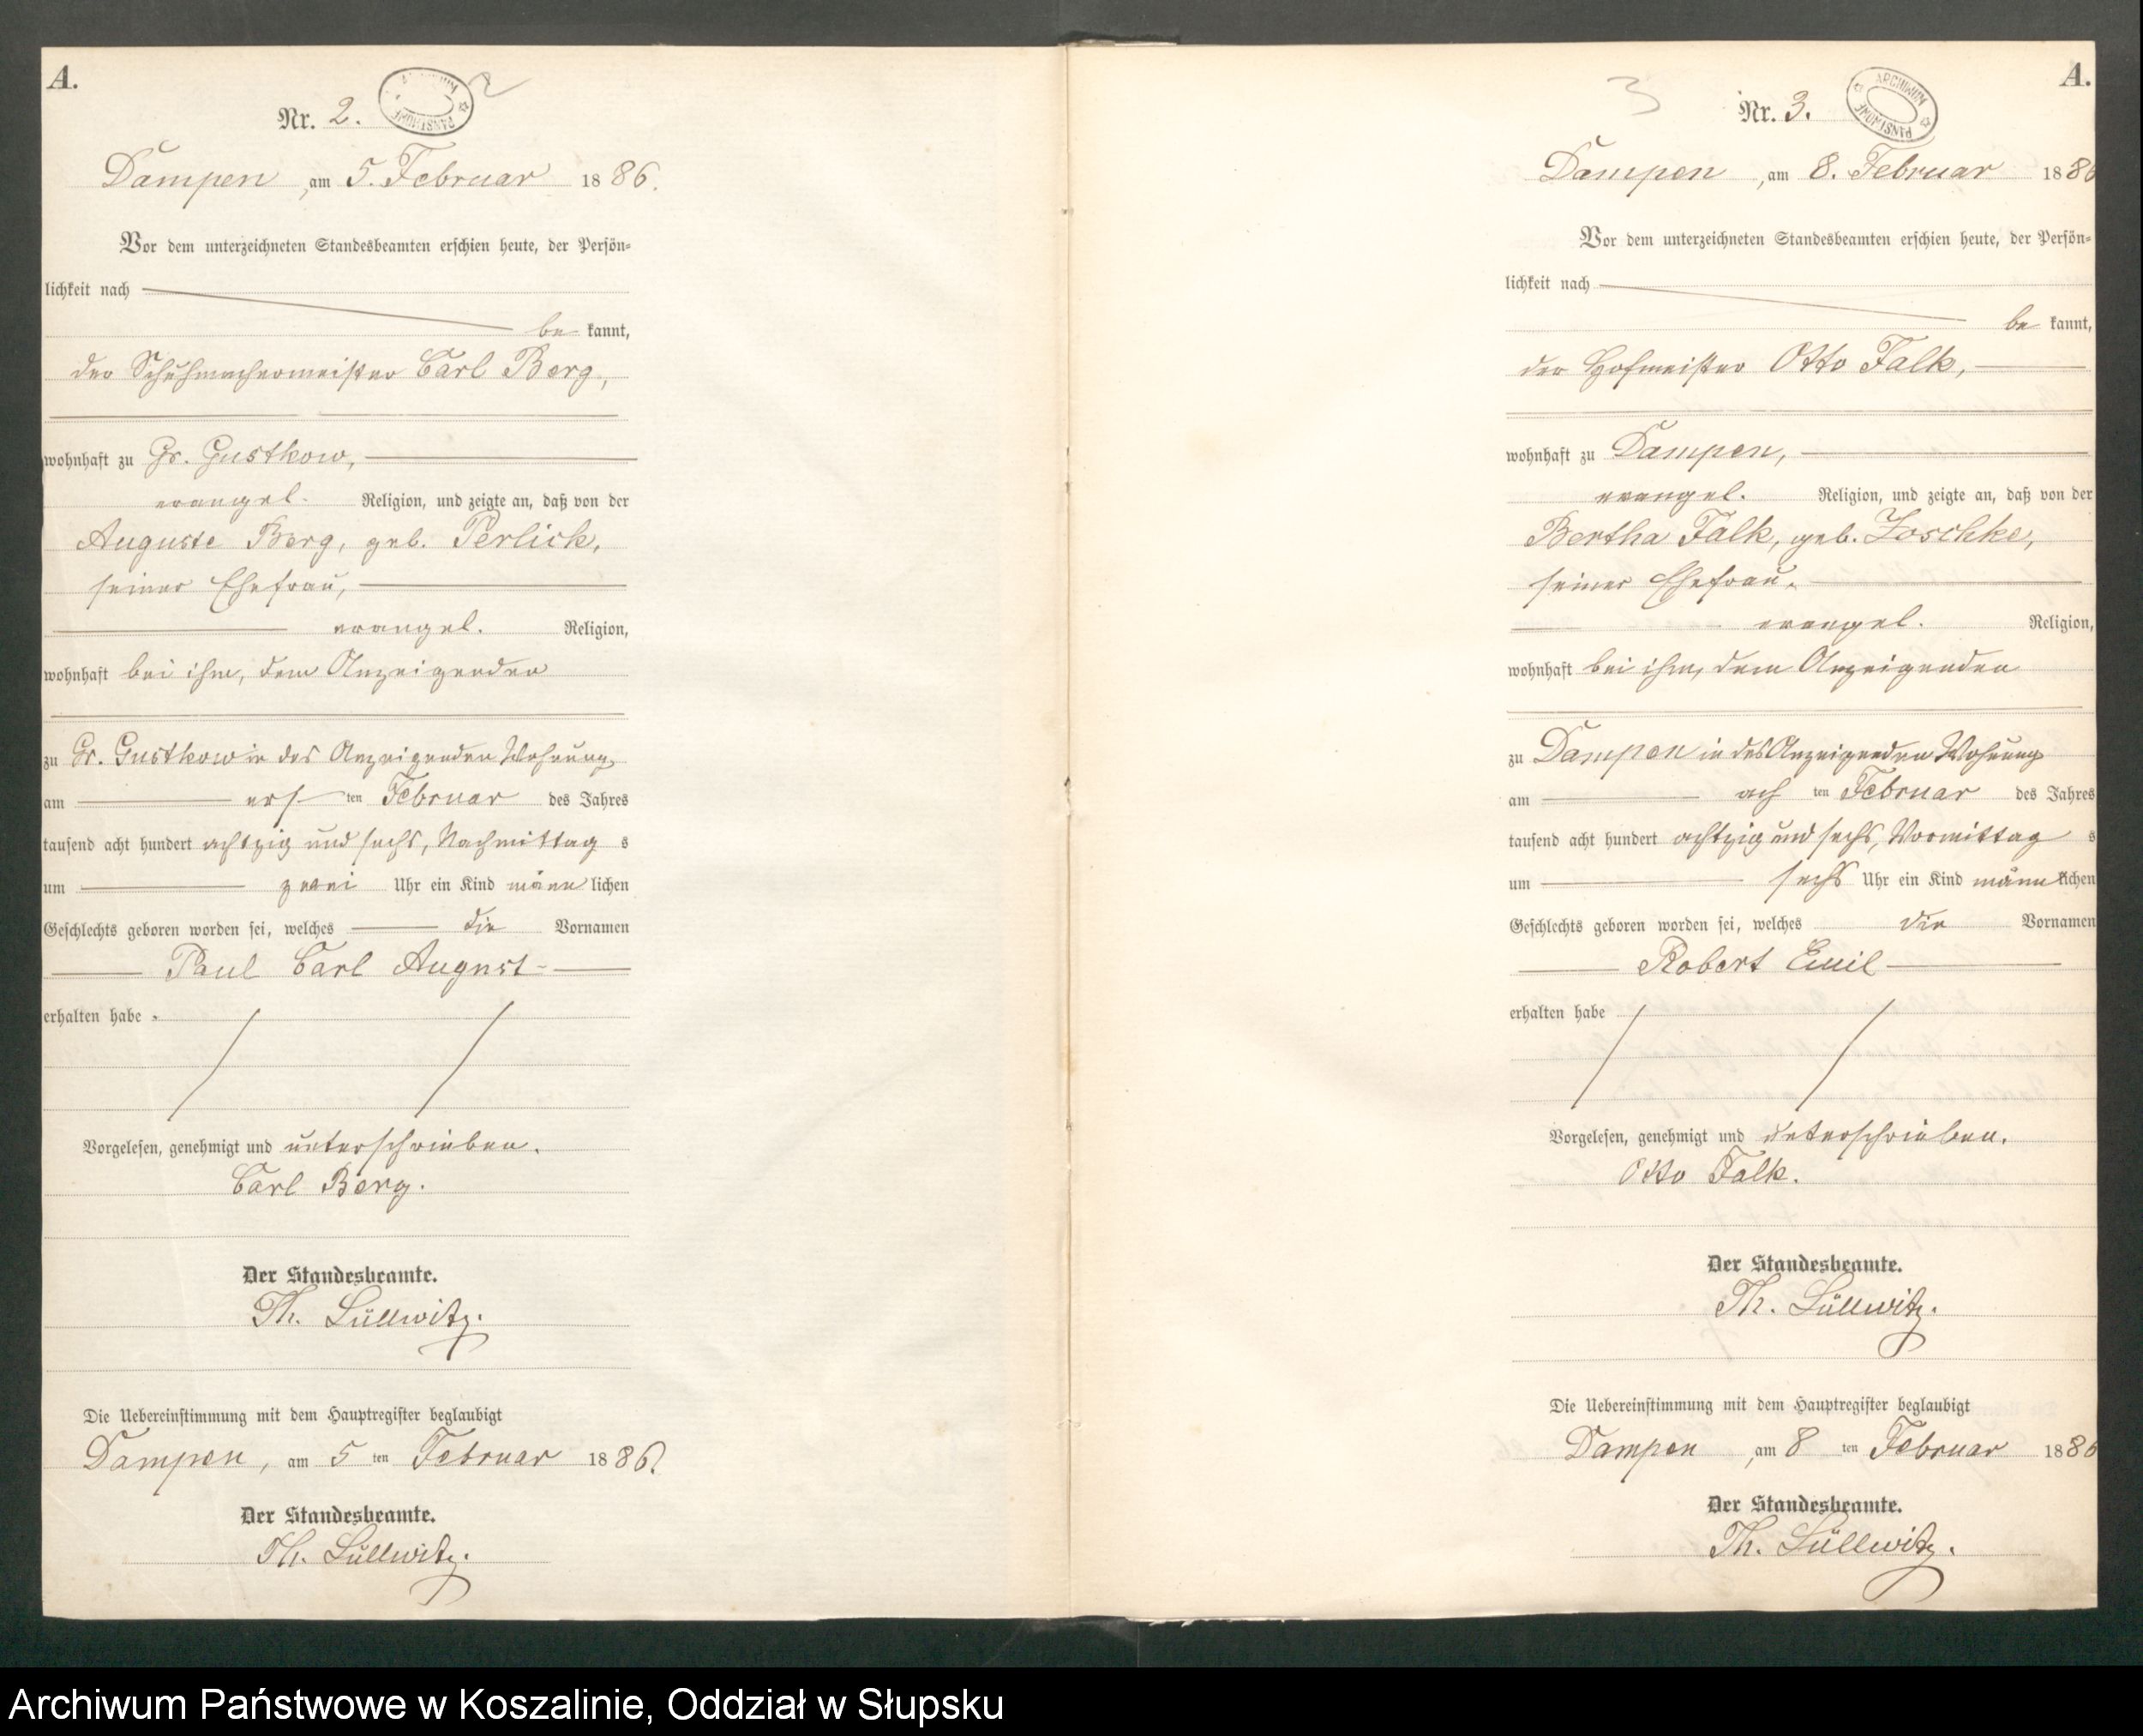 A.
Nr. 2.
2
ARCHIWUM PAŃSTWOWE
Dampen, am 5. Februar 1886.
Vor dem unterzeichneten Standesbeamten erschien heute, der Persön-
lichkeit nach
be kannt,
der Schuhmachermeister Carl Berg,
wohnhaft zu Gr. Gustkow,
evangel. Religion, und zeigte an, daß von der
Auguste Berg, geb. Perlick,
seiner Ehefrau,
evangel. Religion,
wohnhaft bei ihm, dem Anzeigenden
zu Gr. Gustkow in des Anzeigenden Wohnung,
am ers ten Februar des Jahres
tausend acht hundert achtzig und sechs, Nachmittag s
um zwei Uhr ein Kind männ lichen
Geschlechts geboren worden sei, welches die Vornamen
Paul Carl August
erhalten habe.
Vorgelesen, genehmigt und unterschrieben.
Carl Berg.
Der Standesbeamte.
Th. Lüllwitz.
Die Uebereinstimmung mit dem Hauptregister beglaubigt
Dampen, am 5 ten Februar 1886.
Der Standesbeamte.
Th. Lüllwitz.
A.
3
Nr. 3.
ARCHIWUM PAŃSTWOWE
Dampen, am 8. Februar 1886
Vor dem unterzeichneten Standesbeamten erschien heute, der Persön-
lichkeit nach
be kannt,
der Hofmeister Otto Falk,
wohnhaft zu Dampen,
evangel. Religion, und zeigte an, daß von der
Bertha Falk, geb. Zoschke,
seiner Ehefrau,
evangel. Religion,
wohnhaft bei ihm, dem Anzeigenden
zu Dampen in des Anzeigenden Wohnung
am ach ten Februar des Jahres
tausend acht hundert achtzig und sechs, Vormittag s
um sechs Uhr ein Kind männ lichen
Geschlechts geboren worden sei, welches die Vornamen
Robert Emil
erhalten habe
Vorgelesen, genehmigt und unterschrieben.
Otto Falk.
Der Standesbeamte.
Th. Lüllwitz.
Die Uebereinstimmung mit dem Hauptregister beglaubigt
Dampen, am 8 ten Februar 1886
Der Standesbeamte.
Th. Lüllwitz.
Archiwum Państwowe w Koszalinie, Oddział w Słupsku